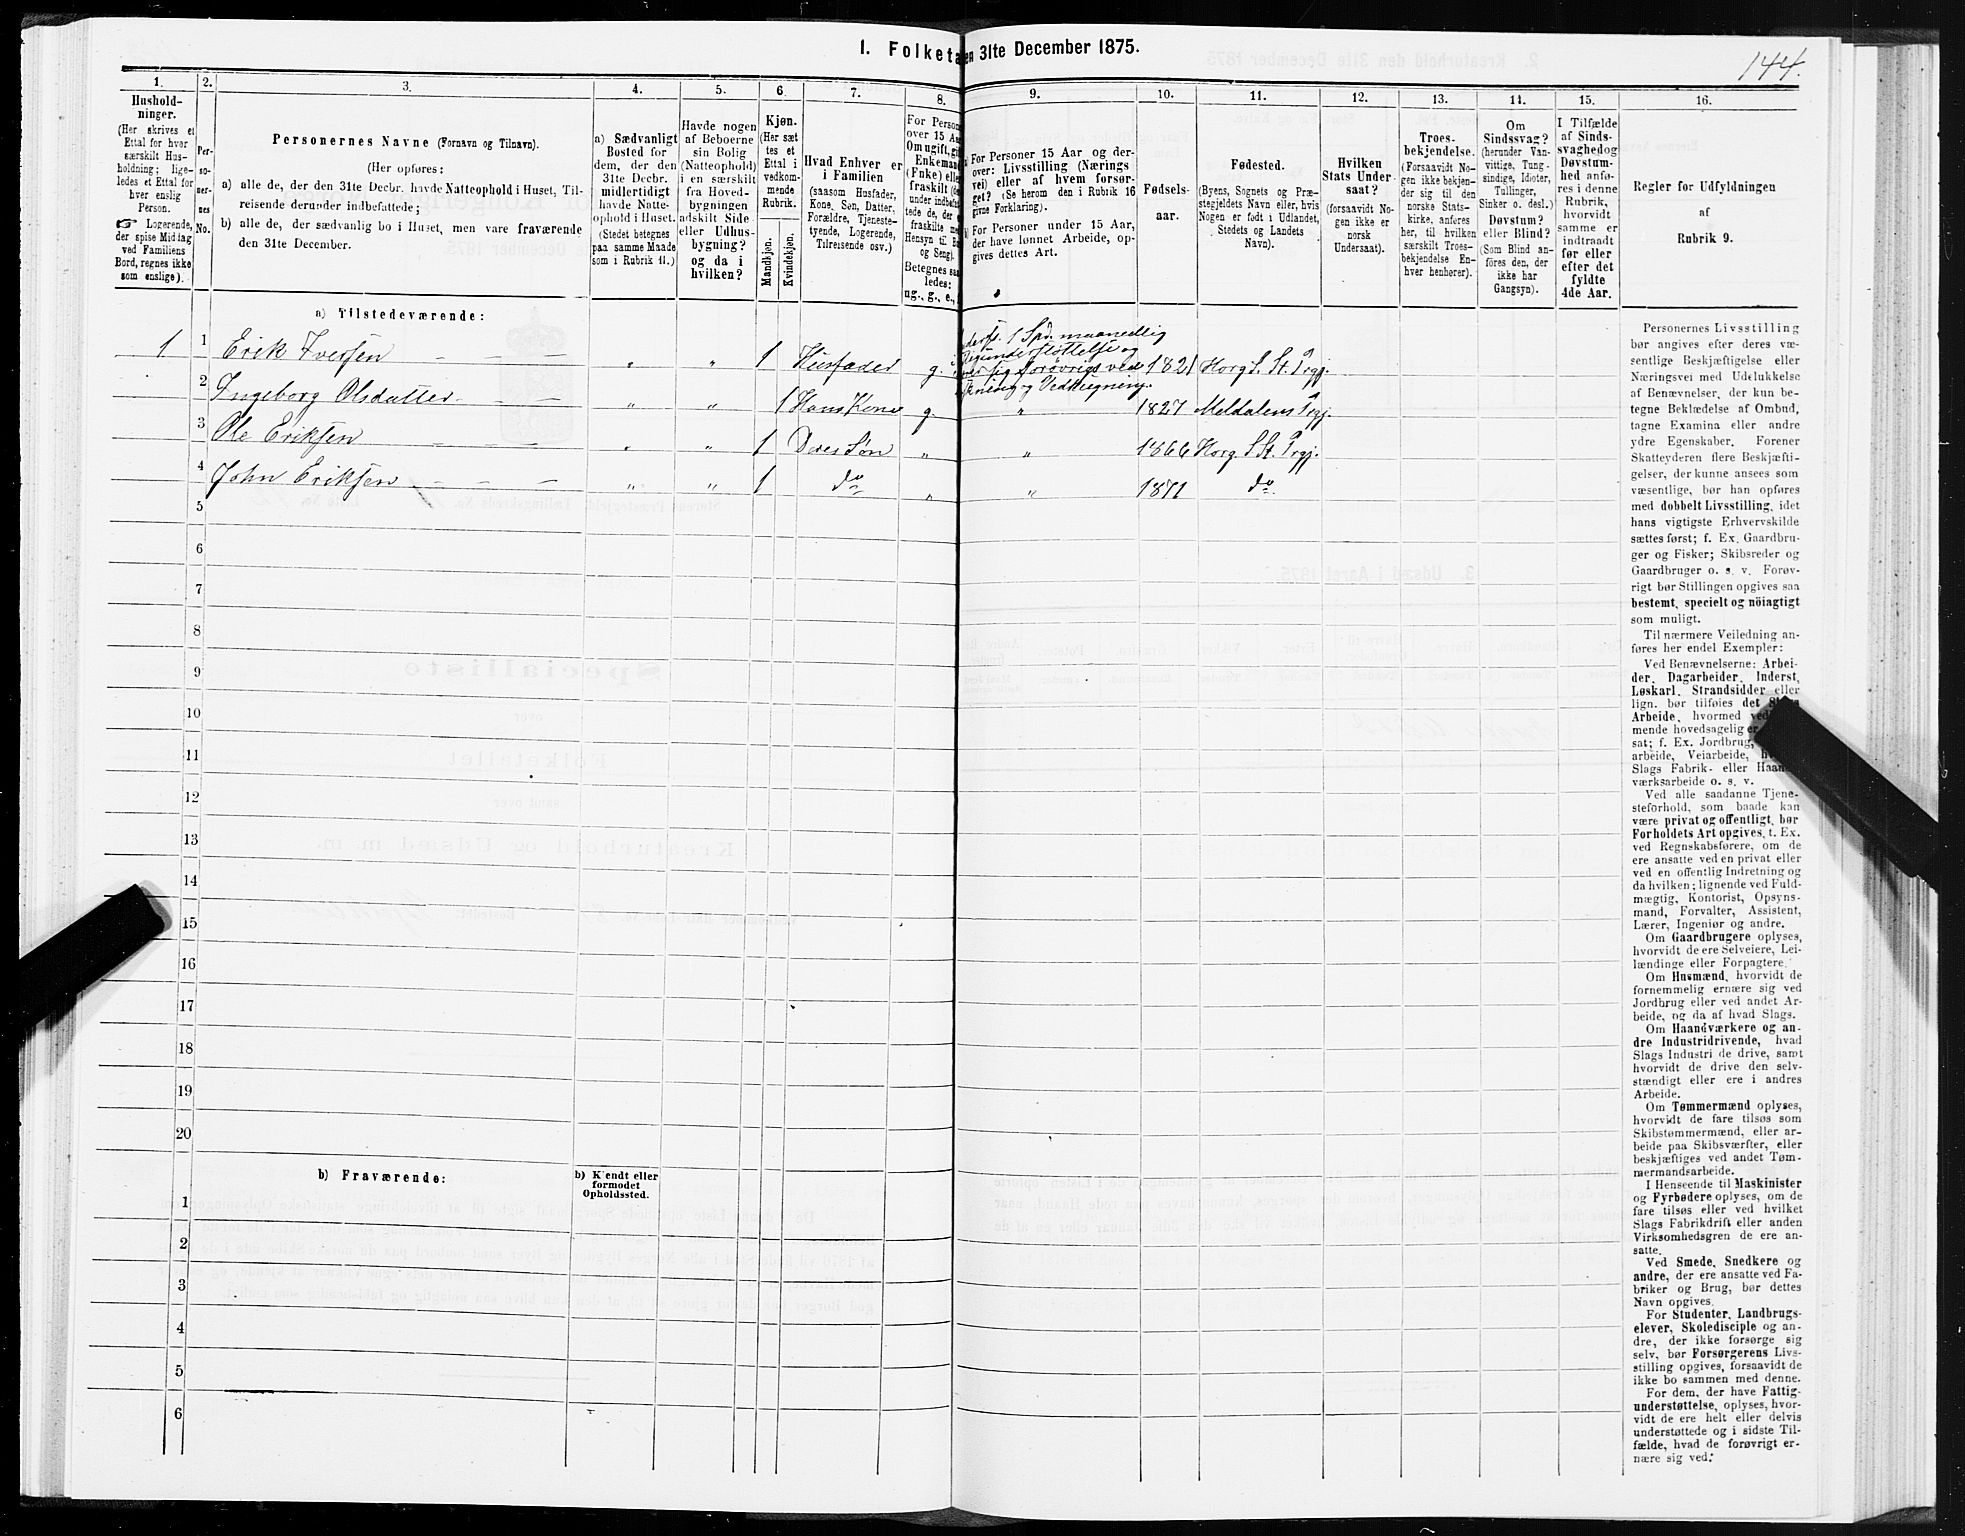 I. Folketa en 31te December 1875.
144.
1.
Hushold-
ninger.
(Her skrives et
Ettal for hver
særskilt Hus-
holdning; lige-
ledes et Ettal for
hver enslig
Person.
☞ Logerende,
der spise Middag
ved Familiens
Bord, regnes ikke
som enslige).
2.
Per-
so-
ner-
nes
No.
3.
Personernes Navne (Fornavn og Tilnavn).
(Her opføres:
a) alle de, der den 31te Decbr. havde Natteophold i Huset, Til-
reisende derunder indbefattede;
b) alle de, der sædvanlig bo i Huset, men vare fraværende
den 31te December.
4.
a) Sædvanligt
Bosted for
dem, der den
31te Decbr.
midlertidigt
havde Natte-
ophold i Huset.
(Stedet betegnes
paa samme Maade
som i Rubrik 11.)
5.
Havde nogen
af Beboerne
sin Bolig
(Natteophold)
i en særskilt
fra Hoved-
bygningen
adskilt Side-
eller Udhus-
bygning?
og da i
hvilken?
6.
Kjøn.
(Her sæt
tes et
Ettal i
vedkom-
mende
Rubrik.
Mandkjøn.
Kvindekjøn.
7.
Hvad Enhver er
i Familien
(saasom Husfader,
Kone, Søn, Datter,
Forældre, Tjeneste-
tyende, Logerende,
Tilreisende osv.)
8.
For Person
over 15 Aa
Om ugift, gift
Enkemand
(Enke) elle
fraskilt (de
under indbefat-
tede de, der e
fraskilte med
Hensyn til Bo
og Seng).
Betegnes saa
ledes:
ug., g., e.,
9.
For Personer 15 Aar og der-
over: Livsstilling (Nærings
vei) eller af hvem forsør-
get? (Se herom den i Rubrik 16
givne Forklaring).
For Personer under 15 Aar,
der have lønnet Arbeide, op-
gives dettes Art.
10.
Fødsels-
aar.
11.
Fødested.
(Byens, Sognets og Præ-
stegjeldets Navn eller, hvis
Nogen er født i Udlandet,
Stedets og Landets
Navn).
12.
Hvilken
Stats Under-
saat?
(forsaavidt No-
gen ikke er
norsk
Undersaat).
13.
Troes-
bekjendelse.
(Forsaavidt No-
gen ikke bekjen-
der sig til den
norske Stats-
kirke, anføres
her, til hvilken
særskilt Troes-
bekjendelse En-
hver henhører).
14.
Om
Sindssvag?
(herunder Van-
vittige, Tung-
sindige, Idioter,
Tullinger,
Sinker o. desl.)
Døvstum?
eller Blind?
(Som Blind an-
føres den, der
ikke har
Gangsyn).
15.
I Tilfælde
af Sinds-
svaghed og
Døvstum-
hed anfø-
res i denne
Rubrik,
hvorvidt
samme er
indtraadt
før eller
efter det
fyldte
4de Aar.
16.
Regler for Udfyldningen
af
Rubrik 9.
a) Tilstedeværende:
1 1 Erik Iversen „ „ 1 Husfader g. 1821 Horg S. St. Prgj.
1 Spd. maanedlig
understøttelse og
sig forøvrigt ved
og Vedhugning.
2 Ingeborg Olsdatter „ „ 1 Hans Kone g. „ 1827 Meldalens Prgj.
3 Ole Eriksen „ „ 1 Deres Søn „ „ 1866 Horg S. St. Prgj.
4 John Eriksen „ „ 1 do „ „ 1871 do.
5
6
7
8
9
10
11
12
13
14
15
16
17
18
19
20
b) Fraværende:
b) Kjendt eller
formodet
Opholdssted.
1
2
3
4
5
6
Personernes Livsstilling
bør angives efter deres væ-
sentlige Beskjæftigelse eller
Næringsvei med Udelukkelse
af Benævnelser, der kun be-
tegne Beklædelse af Ombud,
tagne Examina eller andre
ydre Egenskaber. Forener
Skatteyderen flere Beskjæfti-
gelser, der kunne ansees som
væsentlige, bør han opføres
med dobbelt Livsstilling, idet
hans vigtigste Erhvervskilde
sættes først; f. Ex. Gaardbru-
ger og Fisker; Skibsreder og
Gaardbruger o. s. v. Forøv-
rigt bør Stillingen opgives saa
bestemt, specielt og nöiagtigt
som muligt.
Til nærmere Veiledning an-
føres her endel Exempler:
Ved Benævnelserne: Arbei-
der, Dagarbeider, Inderst,
Løskarl, Strandsidder eller
lign. bør tilføies det Slags
Arbeide, hvormed ved
mende hovedsagelig er
sat; f. Ex. Jordbrug,
arbeide, Veiarbeide,
Slags Fabrik- eller Haand-
værksarbeide o. s. v.
Ved alle saadanne Tjene-
steforhold, som baade kan
være privat og offentligt, bør
Forholdets Art opgives, t. Ex.
ved Regnskabsførere, om de
ere ansatte ved en privat eller
ved en offentlig Indretning og
da hvilken; lignende ved Fuld-
mægtig, Kontorist, Opsyns-
mand, Forvalter, Assistent,
Lærer, Ingeniør og andre.
Om Gaardbrugere oplyses,
hvorvidt de ere Selveiere, Lei-
lændinge eller Forpagtere.
Om Husmænd, hvorvidt de
fornemmelig ernære sig ved
Jordbrug eller ved andet Ar-
beide, og da af hvad Slags.
Om Haandværkere og an-
dre Industridrivende, hvad
Slags Industri de drive, samt
hvorvidt de drive den selv-
stændigt eller ere i andres
Arbeide.
Om Tømmermænd oplyses,
hvorvidt de fare tilsøs som
Skibstømmermænd, eller ar-
beide paa Skibsværfter, eller
beskjæftiges ved andet Tøm-
mermandsarbeide.
I Henseende til Maskinister
og Fyrbødere oplyses, om de
fare tilsøs eller ved hvilket
Slags Fabrikdrift eller anden
Virksomhedsgren de ere an-
satte.
Ved Smede, Snedkere og
andre, der ere ansatte ved Fa-
briker og Brug, bør dettes
Navn opgives.
For Studenter, Landbrugs-
elever, Skoledisciple og an-
dre, der ikke forsørge sig
selv, bør Forsørgerens Livs-
stilling opgives, forsaavidt de
ikke bo sammen med denne.
For dem, der have Fattig-
understøttelse, oplyses, hvor-
vidt de ere helt eller delvis
understøttede og i sidste Til-
fælde, hvad de forøvrigt er-
nære sig ved.